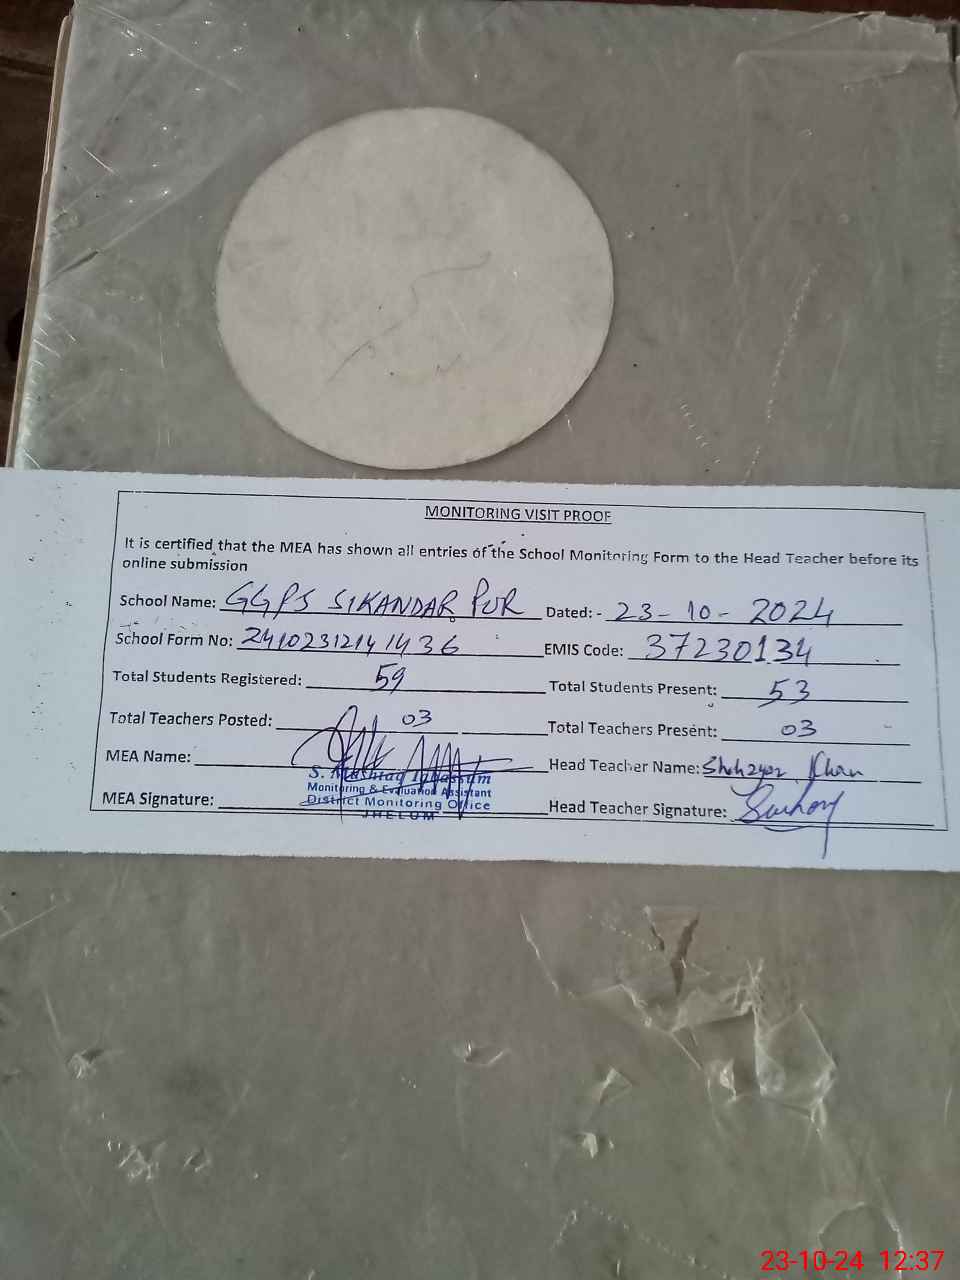 MONITORING VISIT PROOF
It is certified that the MEA has shown all entries of the School Monitoring Form to the Head Teacher before its
online submission
School Name: GGPS SIKANDAR PUR Dated: - 23-10-2024
School Form No: 24102312141436 EMIS Code: 37230134
Total Students Registered: 59 Total Students Present: 53
Total Teachers Posted: 03 Total Teachers Present: 03
MEA Name: Head Teacher Name: Khan
S. Mushtaq
Monitoring & Evaluation Assistant
District Monitoring Office
JHELUM
MEA Signature: Head Teacher Signature:
23-10-24 12:37